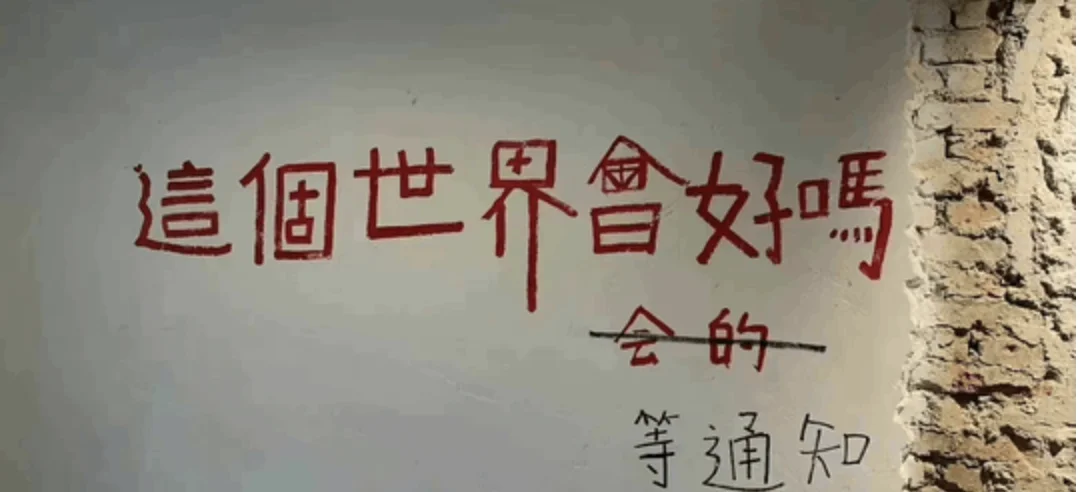 這個世界會好嗎
会的
等通知